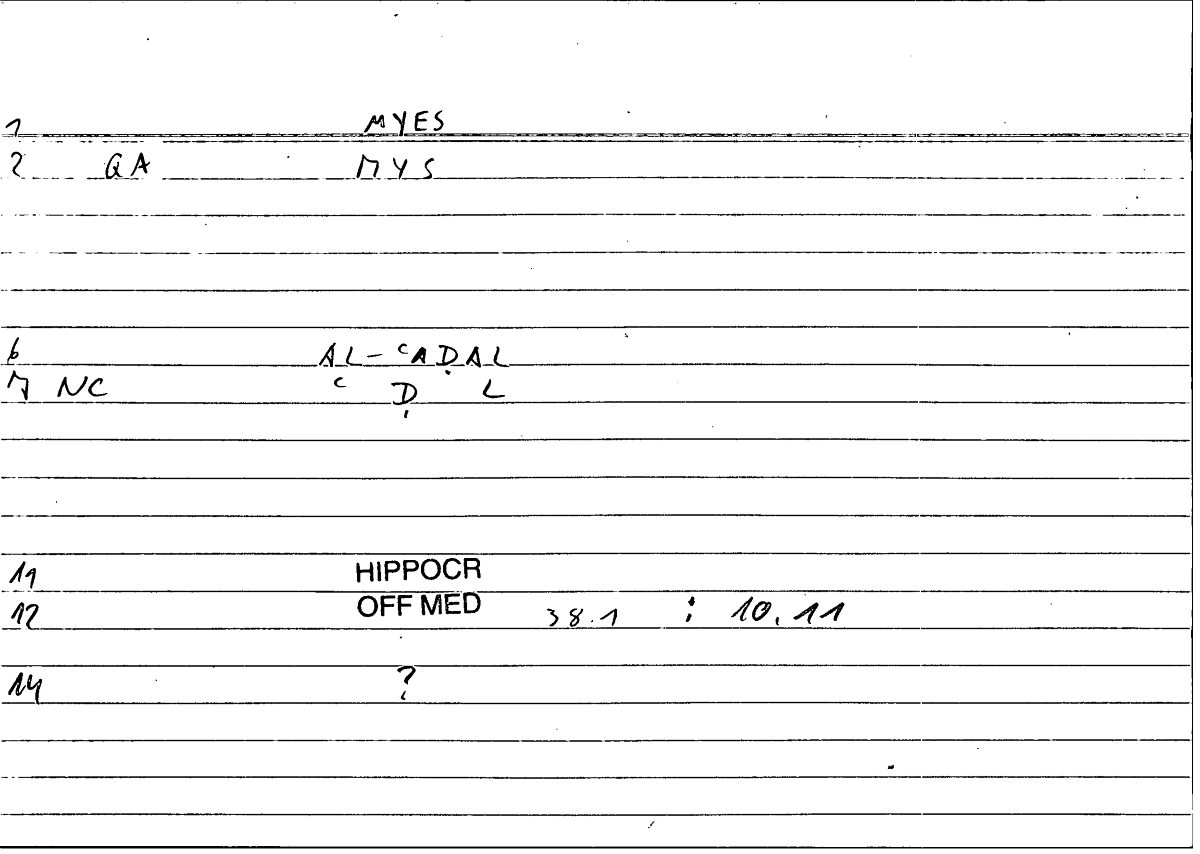 1 MYES
2 QA MYS
6 AL-ᶜAḌAL
7 NC ᶜ Ḍ L
11 HIPPOCR
12 OFF MED 38.1 : 10.11
14 ?